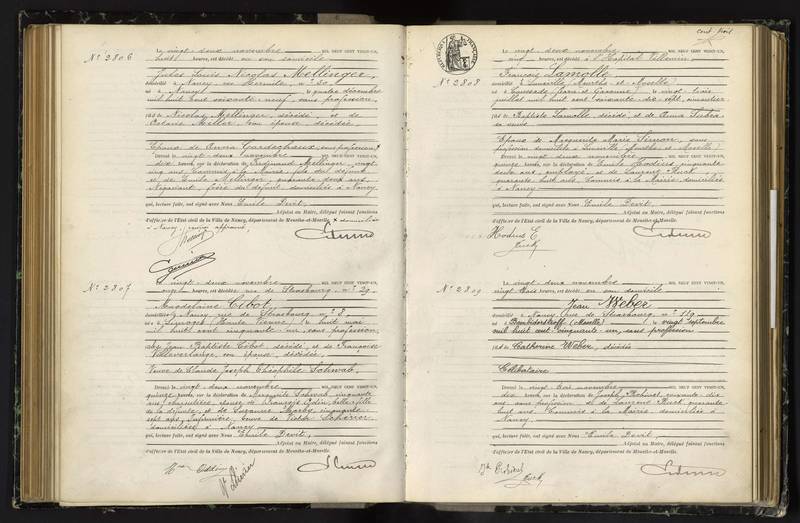 N° 2806
Le vingt-deux novembre MIL NEUF CENT VINGT-UN,
huit heures, est décédé en son domicile
Jules Louis Nicolas Mellinger,
domicilié à Nancy, rue
né à Nancy le quatre décembre
mil huit cent soixante neuf, sans profession,
fils de Nicolas Mellinger, décédé, et de
son épouse décédée,
Époux de Anna Gardechaux, sans profession
Dressé le vingt-deux novembre MIL NEUF CENT VINGT-UN,
dix heures, sur la déclaration de Ferdinand Mellinger, vingt
cinq ans, Commis à la Mairie, fils du défunt
et de Emile Mellinger, quarante deux ans,
Négociant, frère du défunt domiciliés à Nancy
qui, lecture faite, ont signé avec Nous Emile Devit,
Adjoint au Maire, délégué faisant fonctions
d'officier de l'Etat civil de la Ville de Nancy, département de Meurthe-et-Moselle. x domiciliée
à Nancy, renvoi approuvé.
N° 2807
Le vingt-deux novembre MIL NEUF CENT VINGT-UN,
onze heures, est décédée rue de Strasbourg, n° 29
Magdeleine Cibot,
domiciliée à Nancy, rue de Strasbourg, n° 8,
née à Limoges (Haute Vienne) le huit mai
mil huit cent cinquante un, sans profession,
fille Jean Baptiste Cibot décédé, et de Françoise
Villevertange, son épouse, décédée,
Veuve de Claude Joseph Théophile Schwab,
Dressé le vingt-deux novembre MIL NEUF CENT VINGT-UN,
quinze heures, sur la déclaration de Marguerite Schwab, cinquante
ans, chemisière, épouse de François Odin, belle-fille
de la défunte, et de Suzanne Marby, cinquante
sept ans, infirmière, veuve de Scherrer
domiciliées à Nancy
qui, lecture faite, ont signé avec Nous Emile Devit,
Adjoint au Maire, délégué faisant fonctions
d'officier de l'Etat civil de la Ville de Nancy, département de Meurthe-et-Moselle.
cent trois
N° 2808
Le vingt-deux novembre MIL NEUF CENT VINGT-UN,
neuf heures, est décédé à l'Hôpital Villemin
François Lamolle
domicilié à Lunéville (Meurthe et Moselle)
né à (Tarn et Garonne) le vingt-trois
juillet mil huit cent soixante dix-sept,
fils de Baptiste Lamolle décédé, et de Anna
sa veuve
Époux de Marguerite Marie Simon, sans
profession domiciliée à Lunéville (Meurthe et Moselle)
Dressé le vingt-deux novembre MIL NEUF CENT VINGT-UN,
quinze heures, sur la déclaration de Emile Hodius, cinquante
ans, employé, et de Laurent Fuck,
quarante huit ans, Commis à la Mairie, domiciliés
à Nancy
qui, lecture faite, ont signé avec Nous Emile Devit,
Adjoint au Maire, délégué faisant fonctions
d'officier de l'Etat civil de la Ville de Nancy, département de Meurthe-et-Moselle.
Hodius E
Fuck
N° 2809
Le vingt-deux novembre MIL NEUF CENT VINGT-UN,
vingt trois heures, est décédé en son domicile
Jean Weber
domicilié à Nancy, rue de Strasbourg, n° 119
né à (Moselle) le vingt septembre
mil huit cent cinquante un, sans profession
fils de Catherine Weber, décédée
Célibataire
Dressé le vingt-trois novembre MIL NEUF CENT VINGT-UN,
dix heures, sur la déclaration de Joseph
ans, sans profession, et de Laurent Fuck, quarante
huit ans, Commis à la Mairie, domiciliés à
Nancy
qui, lecture faite, ont signé avec Nous Emile Devit,
Adjoint au Maire, délégué faisant fonctions
d'officier de l'Etat civil de la Ville de Nancy, département de Meurthe-et-Moselle.
Fuck